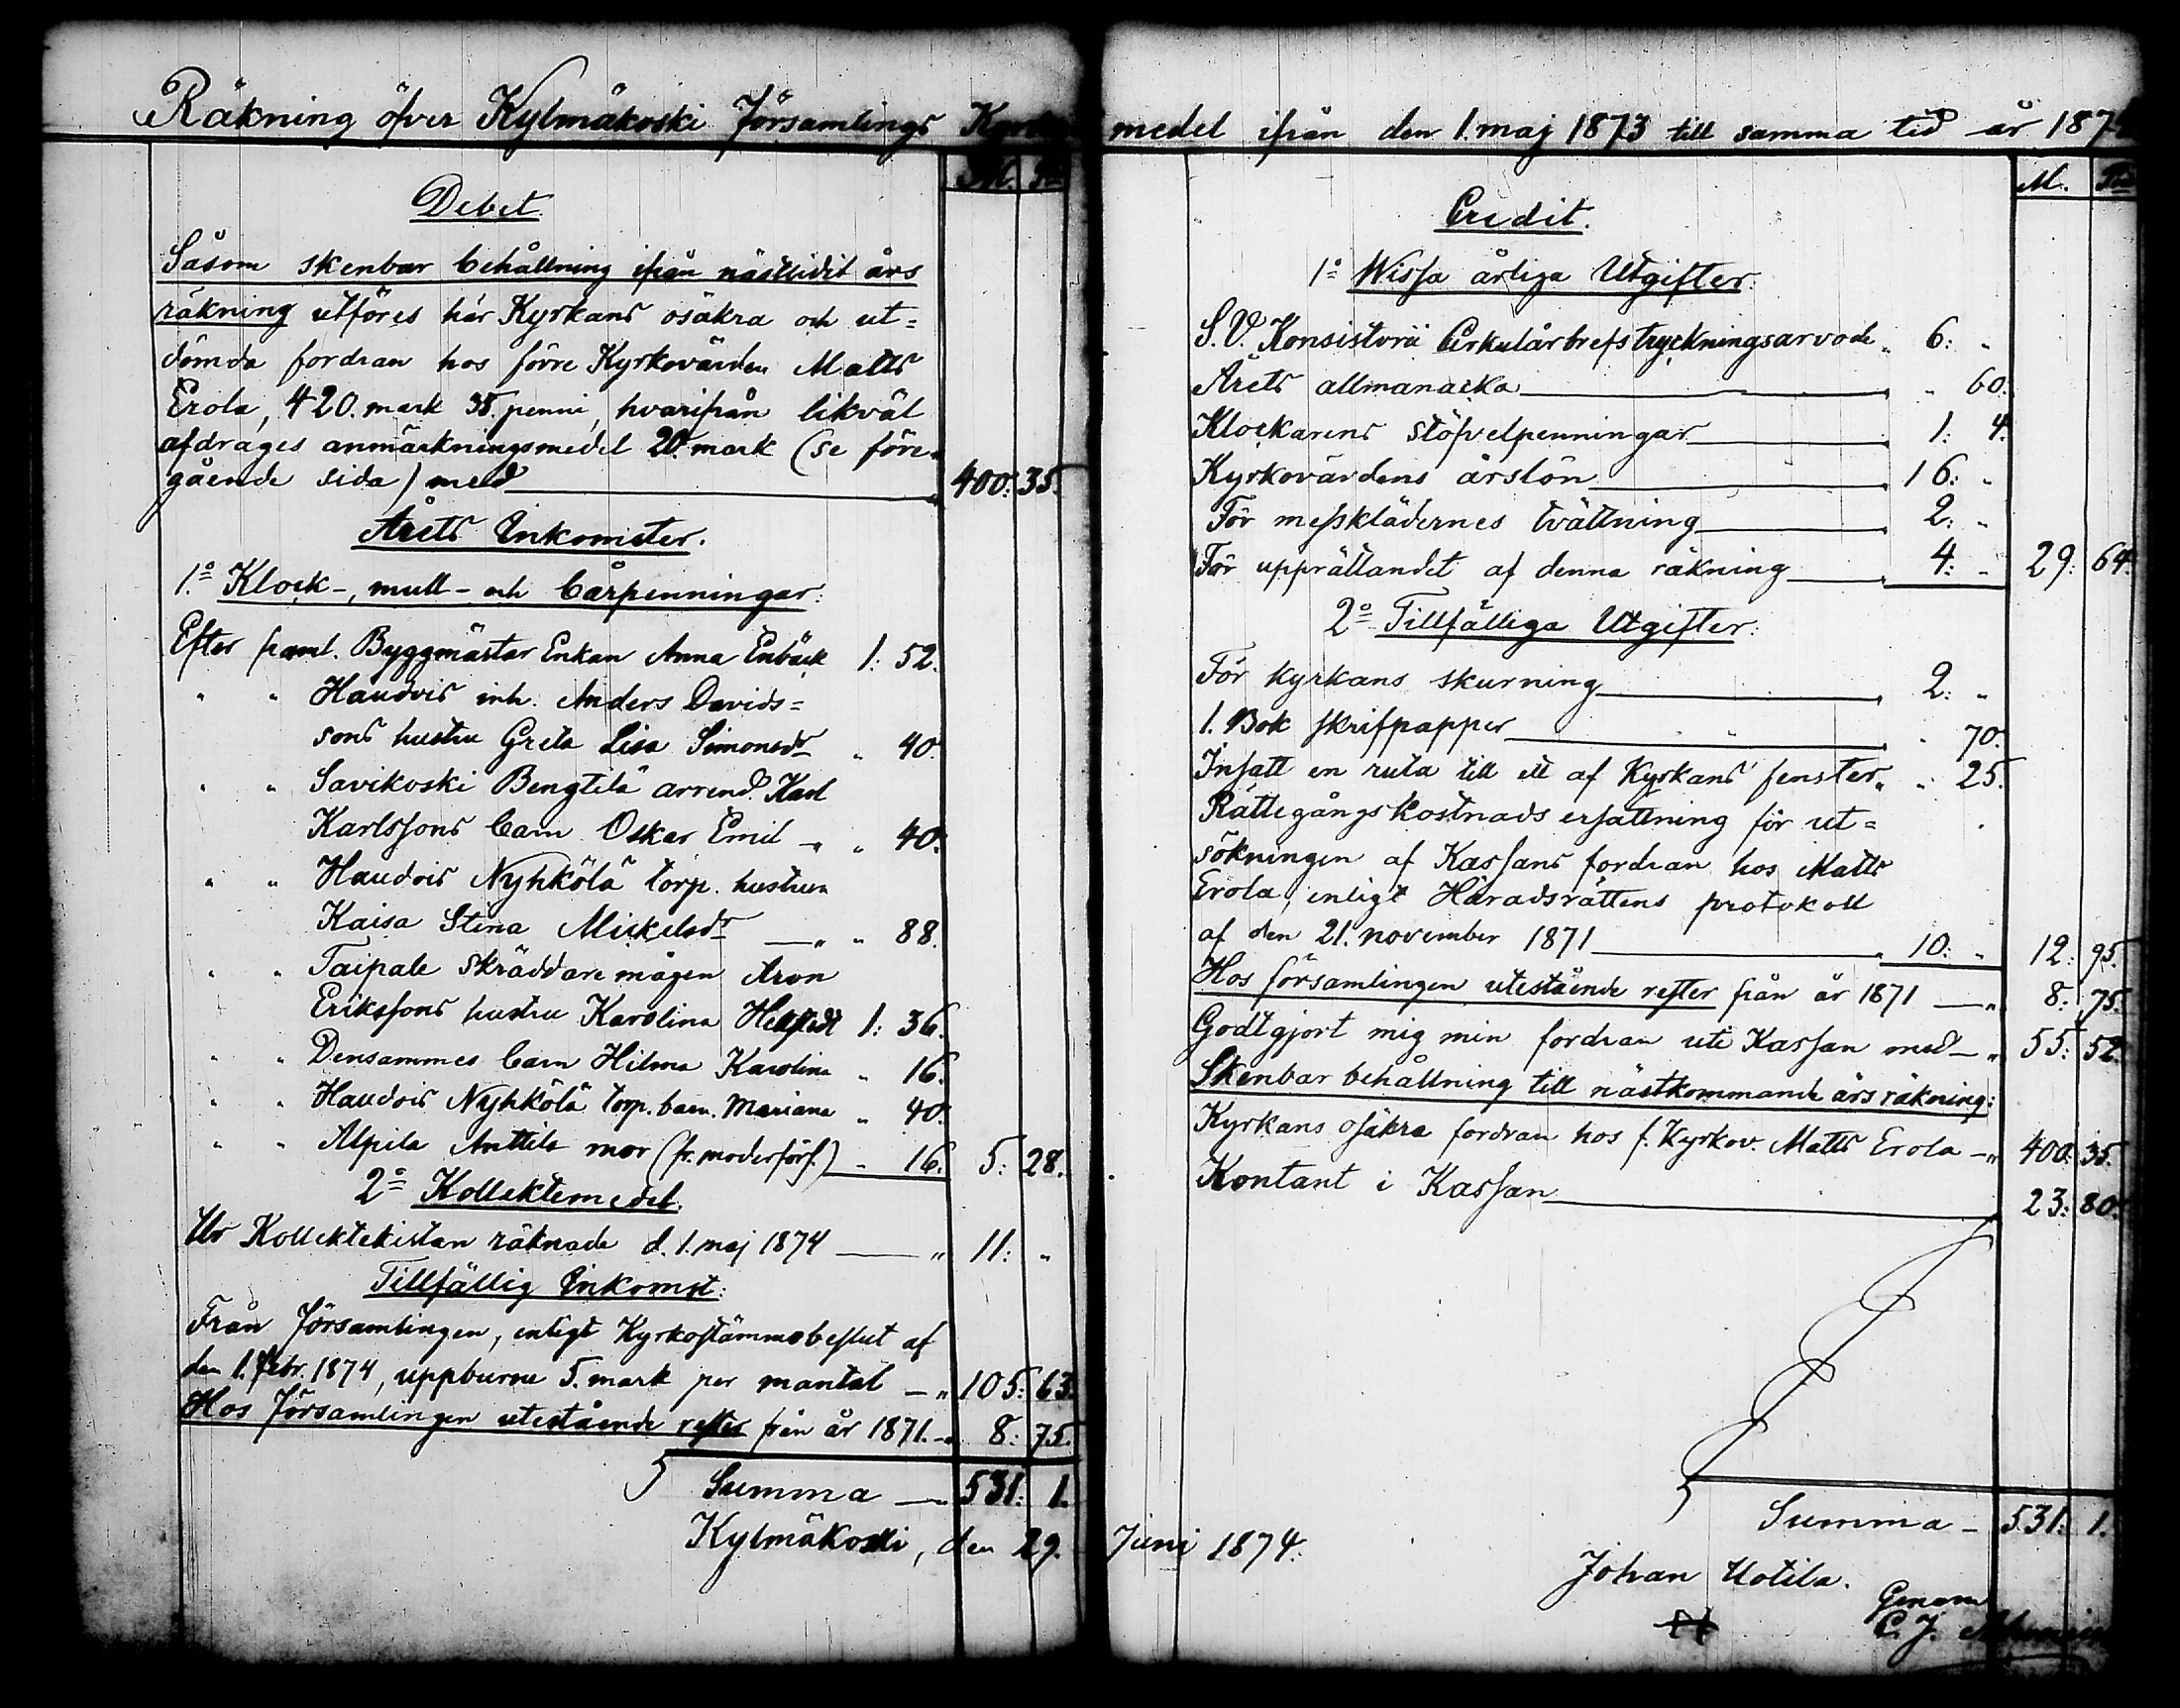 Räkning öfver Kylmäkoski Församlings Kyrko medel ifrån den 1. maj 1873 till samma tid år 187
M.
Debet.
Såsom skenbar behållning ifrån nästlidit års
räkning utföres här Kyrkans osäkra och ut=
dömda fordran hos förre Kyrkovärden Matts
Erola, 420. mark 35. penni, hvarifrån likväl
afdrages anmärkningsmedel 20. mark (se före=
gående sida) med 400: 35.
Årets Inkomster.
1.o Klock-, mull- och bårpenningar:
Efter framl. Byggmästar Enkan Anna Enbäck 1: 52.
" " Haudois inh. Anders Davids=
sons hustru Greta Lisa Simonsdr " 40.
" " Savikoski Bengtilä arrend. Karl
Karlssons barn Oskar Emil " " 40.
" " Haudois Nyhkölä torp. hustrun
Kaisa Stina Mickelsdr " " 88.
" " Taipale skräddare mågen Aron
Erikssons hustru Karolina 1: 36.
" " Densammes barn Hilma Karolina " 16.
" " Haudois Nyhkölä torp. barn. Mariana " 40.
" " Alpila Anttila mor (fr. moderförs.) " 16. 5: 28.
2o Kollektemedel.
Ur Kollektekistan räknade d. 1. maj 1874 " 11: "
Tillfällig Inkomst:
Från Församlingen, enligt Kyrkostämmobeslut af
den 1. febr. 1874, uppburne 5. mark per mantal " 105: 63.
Hos Församlingen utestående rester från år 1871. " 8: 75.
Summa 531: 1.
M.
Credit.
1o Wissa årliga Utgifter:
S. V. Konsistorii Cirkulärbrefs tryckningsarvode " 6: "
Årets allmanacka " " 60.
Klockarens stöfvelpenningar 1: 4.
Kyrkovärdens årslön 16: "
För messklädernes tvättning 2: "
För upprättandet af denna räkning 4: " 29: 64.
2o Tillfälliga Utgifter:
För kyrkans skurning 2: "
1. Bok skrifpapper " 70.
Insatt en ruta till ett af Kyrkans fenster " " 25.
Rättegångskostnads ersättning för ut=
sökningen af Kassans fordran hos Matts
Erola, enligt Häradsrättens protokoll
af den 21. november 1871 10: " 12: 95.
Hos församlingen utestående rester från år 1871 " 8: 75.
Godtgjort mig min fordran uti Kassan med " 55: 52.
Skenbar behållning till nästkommande års räkning:
Kyrkans osäkra fordran hos f. Kyrkov. Matts Erola " 400: 35.
Kontant i Kassan 23: 80.
Summa 531: 1.
Kylmäkoski, den 29. Juni 1874.
Johan Uotila.
Genom
C. J.